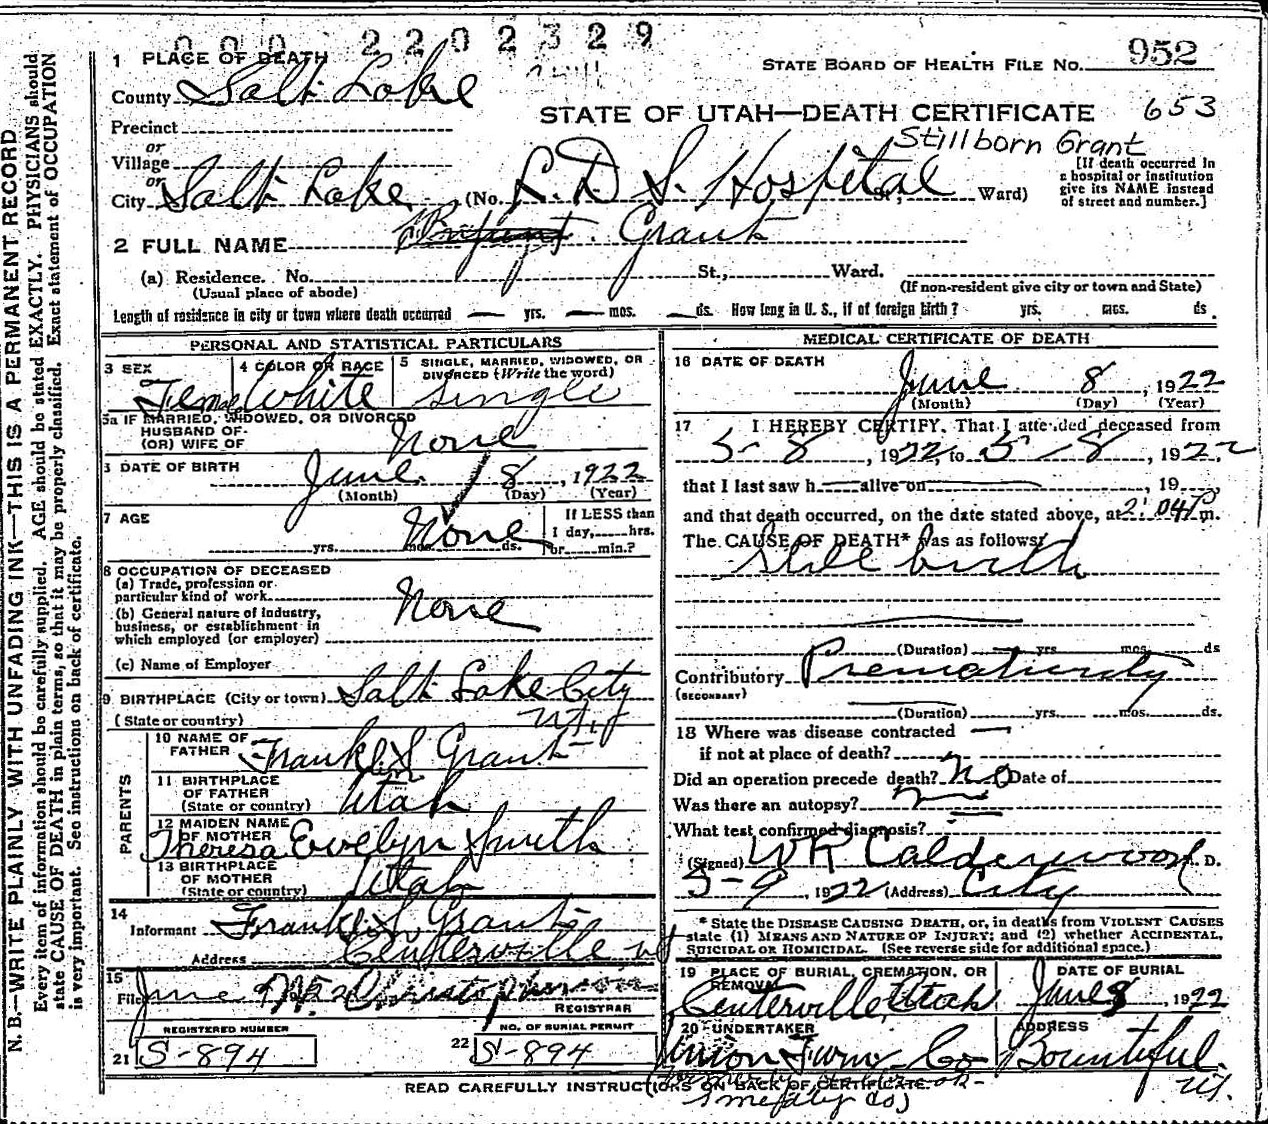 000 2202329
1 PLACE OF DEATH
STATE BOARD OF HEALTH FILE NO. 952
County Salt Lake
STATE OF UTAH—DEATH CERTIFICATE 653
Precinct
or
Village
or
City Salt Lake (No. L. D. S. Hospital St., Ward)
Stillborn Grant
[If death occurred in
a hospital or institution
give its NAME instead
of street and number.]
2 FULL NAME Infant Grant
(a) Residence. No. St., Ward.
(Usual place of abode) (If non-resident give city or town and State)
Length of residence in city or town where death occurred — yrs. — mos. — ds. How long in U. S., if of foreign birth? yrs. mos. ds.
PERSONAL AND STATISTICAL PARTICULARS
3 SEX Female
4 COLOR OR RACE White
5 SINGLE, MARRIED, WIDOWED, OR
DIVORCED (Write the word) Single
5a IF MARRIED, WIDOWED, OR DIVORCED
HUSBAND OF
(OR) WIFE OF None
DATE OF BIRTH June 8, 1922
(Month) (Day) (Year)
7 AGE None
yrs. mos. ds.
If LESS than
1 day, hrs.
or min.?
8 OCCUPATION OF DECEASED
(a) Trade, profession or
particular kind of work None
(b) General nature of industry,
business, or establishment in
which employed (or employer)
(c) Name of Employer
9 BIRTHPLACE (City or town) Salt Lake City
(State or country)
PARENTS
10 NAME OF
FATHER Grant
11 BIRTHPLACE
OF FATHER
(State or country) Utah
12 MAIDEN NAME
OF MOTHER Theresa Evelyn Smith
13 BIRTHPLACE
OF MOTHER
(State or country) Utah
14
Informant Grant
Address Centerville Ut
15
Filed June
REGISTRAR
REGISTERED NUMBER
21 S-894
NO. OF BURIAL PERMIT
22 S-894
MEDICAL CERTIFICATE OF DEATH
16 DATE OF DEATH
June 8, 1922
(Month) (Day) (Year)
17 I HEREBY CERTIFY, That I attended deceased from
5-8, 1922, to 5-8, 1922
that I last saw h alive on , 19
and that death occurred, on the date stated above, at 2:04 P m.
The CAUSE OF DEATH* was as follows:
Still birth
(Duration) yrs. mos. ds
Contributory Prematurity
(SECONDARY)
(Duration) yrs. mos. ds.
18 Where was disease contracted
if not at place of death?
Did an operation precede death? No Date of
Was there an autopsy?
What test confirmed diagnosis?
(Signed) W R Calderwood M. D.
5-9, 1922 (Address) City
* State the DISEASE CAUSING DEATH, or, in deaths from VIOLENT CAUSES
state (1) MEANS AND NATURE OF INJURY; and (2) whether ACCIDENTAL,
SUICIDAL OR HOMICIDAL. (See reverse side for additional space.)
19 PLACE OF BURIAL, CREMATION, OR
REMOVAL
Centerville, Utah
DATE OF BURIAL
June 8, 1922
20 UNDERTAKER
Union Furn Co
ADDRESS
Bountiful.
Ut.
READ CAREFULLY INSTRUCTIONS ON BACK OF CERTIFICATE.
N. B.—WRITE PLAINLY WITH UNFADING INK—THIS IS A PERMANENT RECORD
Every item of information should be carefully supplied. AGE should be stated EXACTLY. PHYSICIANS should
state CAUSE OF DEATH in plain terms, so that it may be properly classified. Exact statement of OCCUPATION
is very important. See instructions on back of certificate.